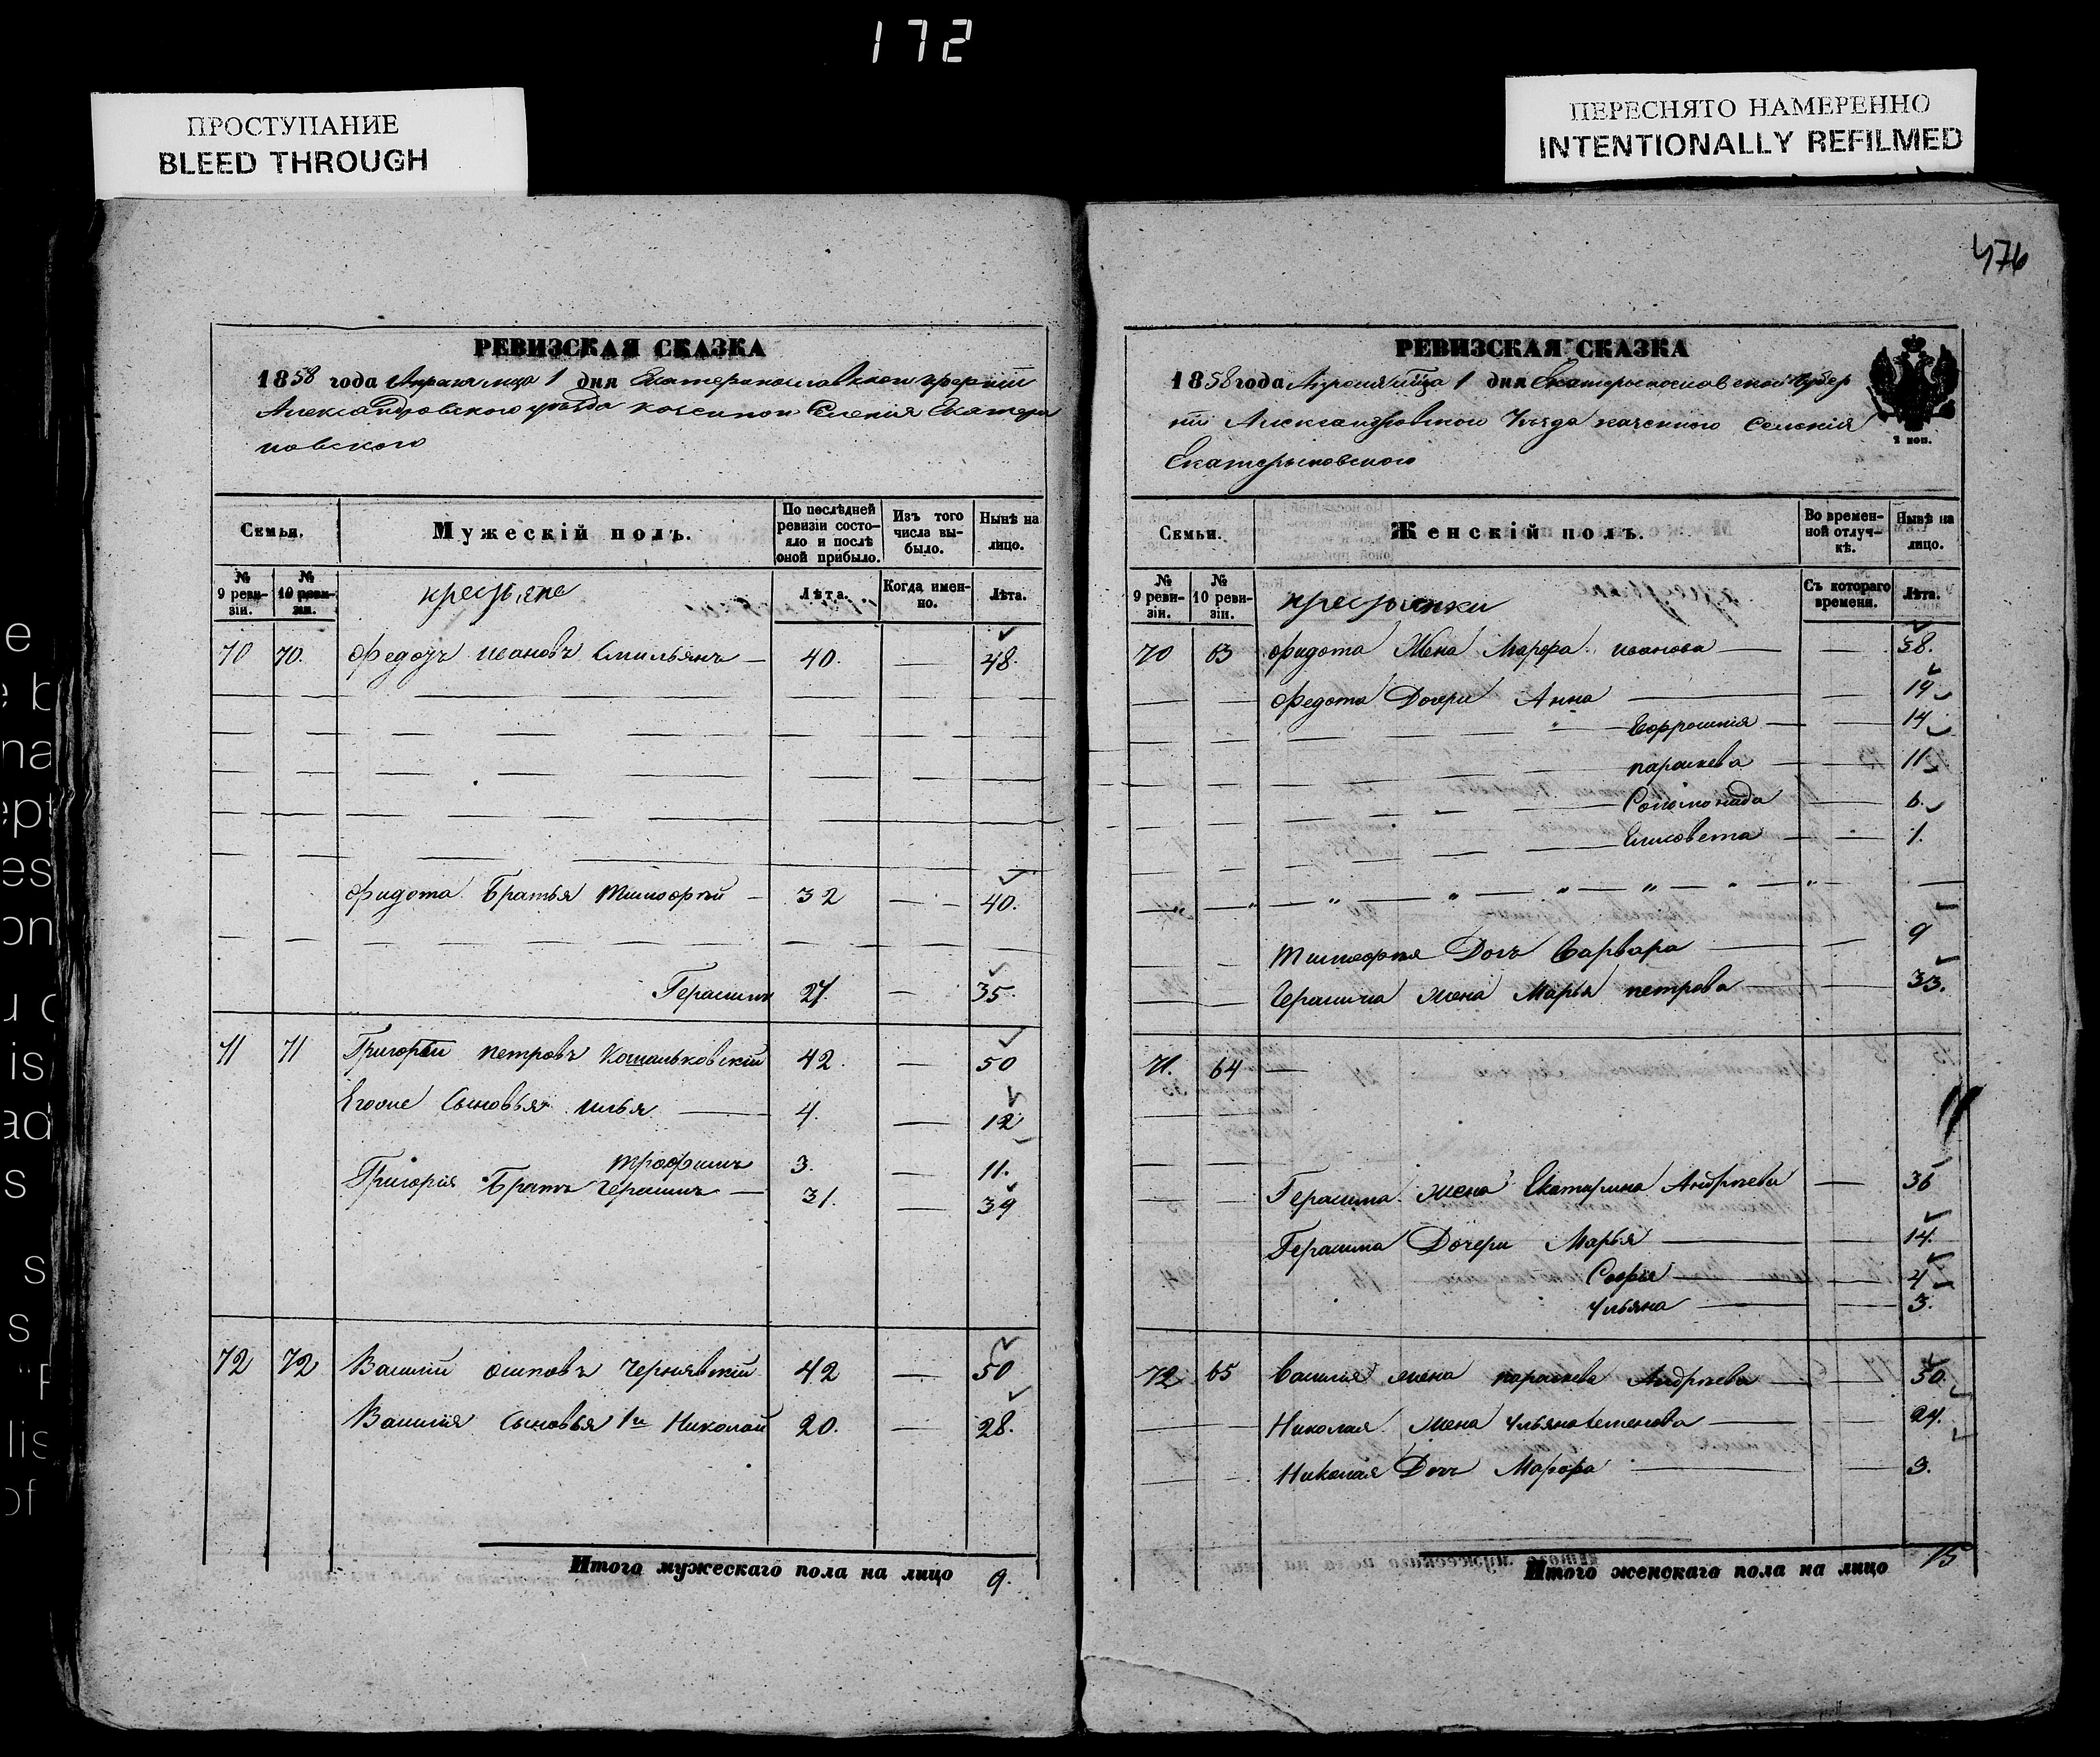 172
ПРОСТУПАНИЕ
BLEED THROUGH
ПЕРЕСНЯТО НАМЕРЕННО
INTENTIONALLY REFILMED
476
РЕВИЗСКАЯ СКАЗКА
1858 года Апреля мца 1 дня Екатеринославской
Александровского уезда Селения Екатери
новского
Семьи.
Мужескій полъ.
По послѣдней ревизіи состояло и послѣ оной прибыло.
Изъ того числа выбыло.
Нынѣ на лицо.
№ 9 ревизіи.
№ 10 ревизіи.
крестьяне
Лѣта.
Когда именно.
Лѣта.
70 70. Федотъ Ивановъ Емильянъ — 40. — 48.
Фидота Братья Тимофѣй — 32 — 40.
Герасимъ 27. — 35.
71 71 Григорій Петровъ 42. — 50
Сыновья Илья — 4. — 12
Трофимъ 3. — 11.
Григорія Братъ Герасимъ — 31. — 39
72 72 Василій Осиповъ Чернявскій 42 — 50
Василія Сыновья 1й Николай 20. — 28.
Итого мужескаго пола на лицо 9.
РЕВИЗСКАЯ СКАЗКА
1858 года Апреля мца 1 дня Екатеринославской Губер
ніи Александровского Уезда Селенія
Екатериновского
2 коп.
Семьи.
Женскій полъ.
Во временной отлучкѣ.
Нынѣ на лицо.
№ 9 ревизіи.
№ 10 ревизіи.
крестьянки
Съ котораго времени.
Лѣта.
70 63 Фидота Жена Марфа Иванова — 38.
Федота Дочери Анна — 19
Ефросинія — 14
Параскева — 11
Соломонида — 6.
Елисовета — 1.
Тимофѣя Дочь Варвара — 9
Герасима жена Марья Петрова — 33.
71. 64 —
Герасима жена Екатерина Андрѣева — 36
Герасима Дочери Марья — 14.
Софія — 4
Ульяна — 3.
72 65 Василія жена Параскева Андрѣева — 50.
Николая жена Ульяна Семенова — 24.
Николая Дочь Марфа — 3.
Итого женскаго пола на лицо 15